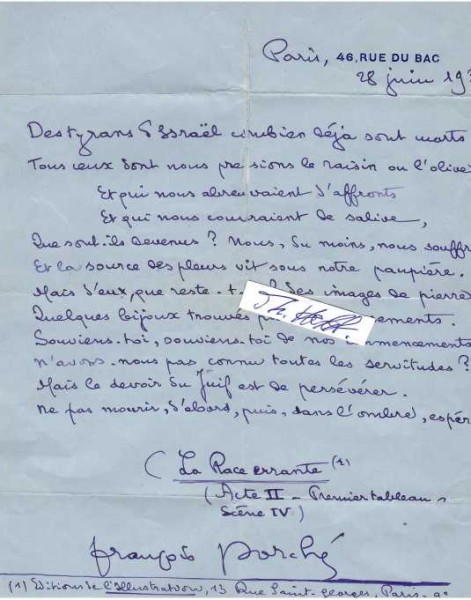 Paris, 46, RUE DU BAC
28 juin 193
Des tyrans d'Israël combien déjà sont morts
Tous ceux dont nous pressions le raisin ou l'olive
Et qui nous abreuvaient d'affronts
Et qui nous couvraient de salive,
Que sont-ils devenus? Nous, du moins, nous souffr
Et la source des pleurs vit sous notre paupière.
Mais d'eux, que reste-t- des images de pierre
Quelques bijoux trouvés
Souviens-toi, souviens-toi de nos commencements
N'avons-nous pas connu toutes les servitudes?
Mais le devoir du Juif est de persévérer.
Ne pas mourir, d'abord, puis, dans l'ombre, espér
(La Race errante (1)
(Acte II - Premier tableau,
Scène IV)
François Porché
(1) Editions de l'Illustration, 13 Rue Saint-Georges, Paris-9e